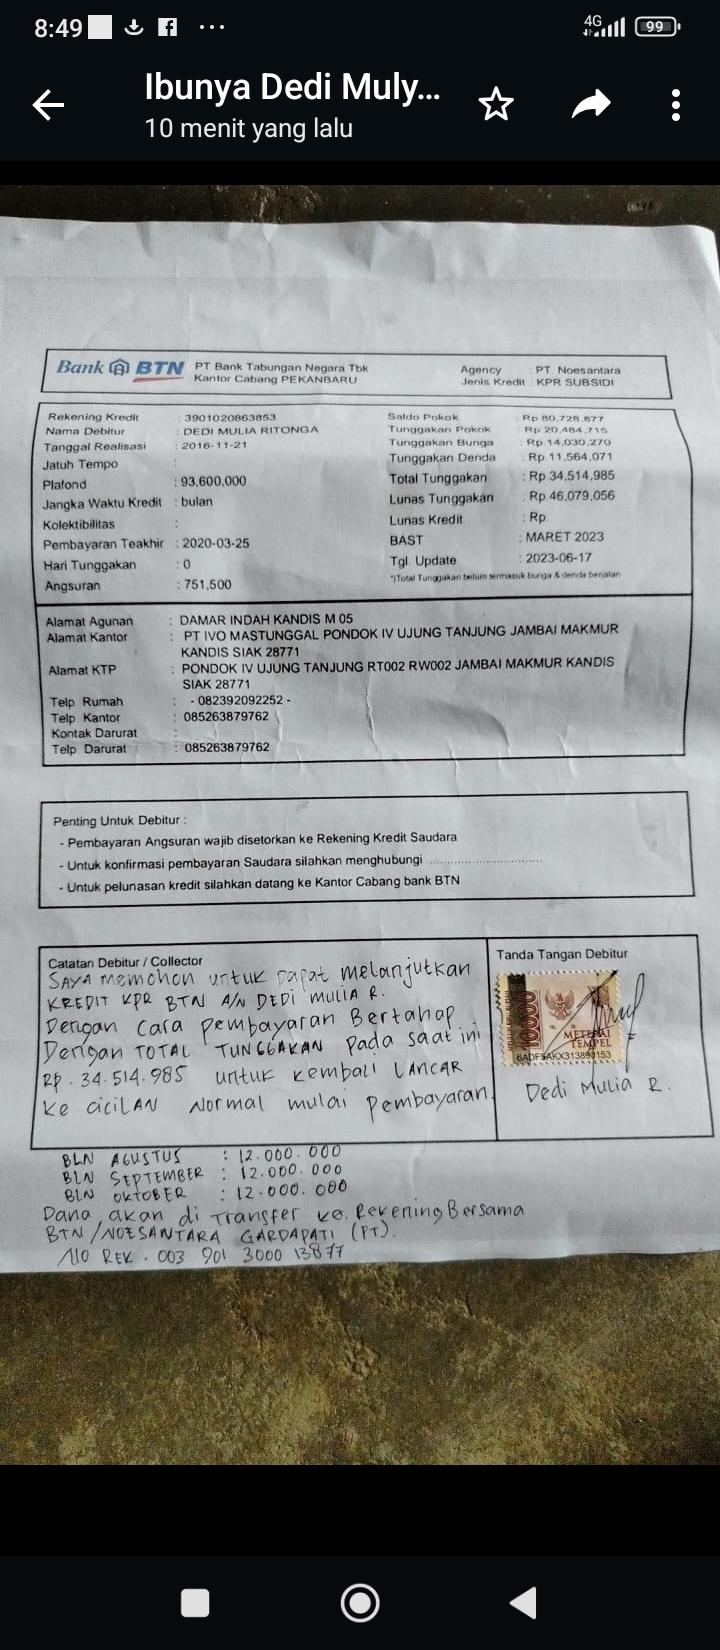 8:49
4G
99
Ibunya Dedi Muly...
10 menit yang lalu
Bank BTN PT Bank Tabungan Negara Tbk
Kantor Cabang PEKANBARU
Agency : PT. Noesantara
Jenis Kredit : KPR SUBSIDI
Rekening Kredit : 3901020863853
Nama Debitur : DEDI MULIA RITONGA
Tanggal Realisasi : 2016-11-21
Jatuh Tempo :
Plafond : 93,600,000
Jangka Waktu Kredit : bulan
Kolektibilitas :
Pembayaran Teakhir : 2020-03-25
Hari Tunggakan : 0
Angsuran : 751,500
Saldo Pokok : Rp 80,728,877
Tunggakan Pokok : Rp 20,484,715
Tunggakan Bunga : Rp 14,030,270
Tunggakan Denda : Rp 11,564,071
Total Tunggakan : Rp 34,514,985
Lunas Tunggakan : Rp 46,079,056
Lunas Kredit : Rp
BAST : MARET 2023
Tgl. Update : 2023-06-17
*)Total Tunggakan belum termasuk bunga & denda berjalan
Alamat Agunan : DAMAR INDAH KANDIS M 05
Alamat Kantor : PT IVO MASTUNGGAL PONDOK IV UJUNG TANJUNG JAMBAI MAKMUR
KANDIS SIAK 28771
Alamat KTP : PONDOK IV UJUNG TANJUNG RT002 RW002 JAMBAI MAKMUR KANDIS
SIAK 28771
Telp Rumah : - 082392092252 -
Telp Kantor : 085263879762
Kontak Darurat :
Telp Darurat : 085263879762
Penting Untuk Debitur :
- Pembayaran Angsuran wajib disetorkan ke Rekening Kredit Saudara
- Untuk konfirmasi pembayaran Saudara silahkan menghubungi ..............................
- Untuk pelunasan kredit silahkan datang ke Kantor Cabang bank BTN
Catatan Debitur / Collector
SAYA memohon untuk dapat melanjutkan
KREDIT KPR BTN A/N DEDI MULIA R.
Dengan Cara pembayaran Bertahap
Dengan TOTAL TUNGGAKAN pada saat ini
Rp. 34.514.985 untuk kembali LANCAR
ke ciciLAN Normal mulai pembayaran
Tanda Tangan Debitur
10000
METERAI
TEMPEL
Dedi Mulia R.
BLN AGUSTUS : 12.000.000
BLN SEPTEMBER : 12.000.000
BLN OKTOBER : 12.000.000
Dana akan di Transfer ke. Rekening Bersama
BTN /NOESANTARA GARDAPATI (PT).
NO REK. 003 901 3000 13877